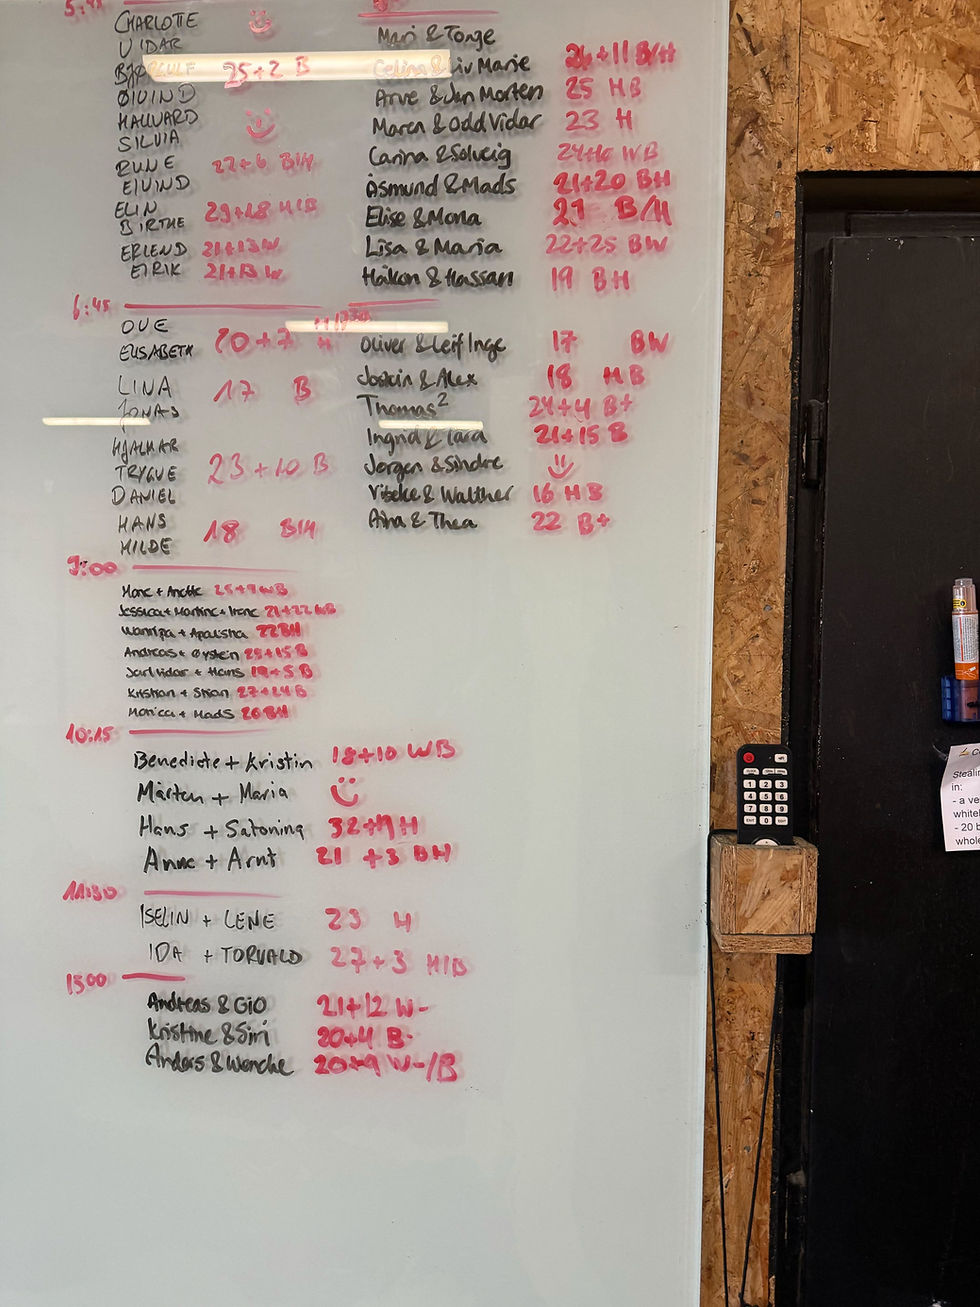 5:45
CHARLOTTE
VIDAR
25+2 B
ØIVIND
HALLVARD
SILVIA
RUNE 22+6 B/H
EIVIND
ELIN 29+18 H/B
BIRTHE
ERLEND 21+13 W
EIRIK 21+13 W
Mari & Tonge
Celina & Liv Marie 26+11 B/H
Arve & Jan Morten 25 HB
Maren & Odd Vidar 23 H
Carina & Solveig 24+6 WB
Åsmund & Mads 21+20 BH
Elise & Mona 21 B/H
Lisa & Maria 22+25 BW
Håkon & Hassan 19 BH
6:45
OVE
ELISABETH 20+7 H
LINA 17 B
JONAS
HJALMAR
TRYGVE 23+10 B
DANIEL
HANS 18 B/H
HILDE
Oliver & Leif Inge 17 BW
Joakin & Alex 18 HB
Thomas² 24+4 B+
Ingrid & Tara 21+15 B
Jørgen & Sindre
Vibeke & Walther 16 HB
Aina & Thea 22 B+
9:00
Marc + Anette 25+9 WB
Jessica + Martine + Irene 21+22 WB
Wannipa + Apalisha 22 BH
Andreas + Øystein 25+15 B
Jarl Vidar + Hans 19+5 B
Kristian + Stian 27+24 B
Monica + Mads 20 BH
10:15
Benedicte + Kristin 18+10 WB
Mårten + Maria
Hans + Satoning 32+9 H
Anne + Arnt 21 +3 BH
11:30
ISELIN + LENE 23 H
IDA + TORVALD 27+3 H/B
1500
Andreas & GIO 21+12 W-
Kristine & Siri 20+4 B-
Anders & Wenche 20+9 W-/B
Stealin
in:
- a ve
white
- 20 b
whole
1 2 3
4 5 6
7 8 9
0